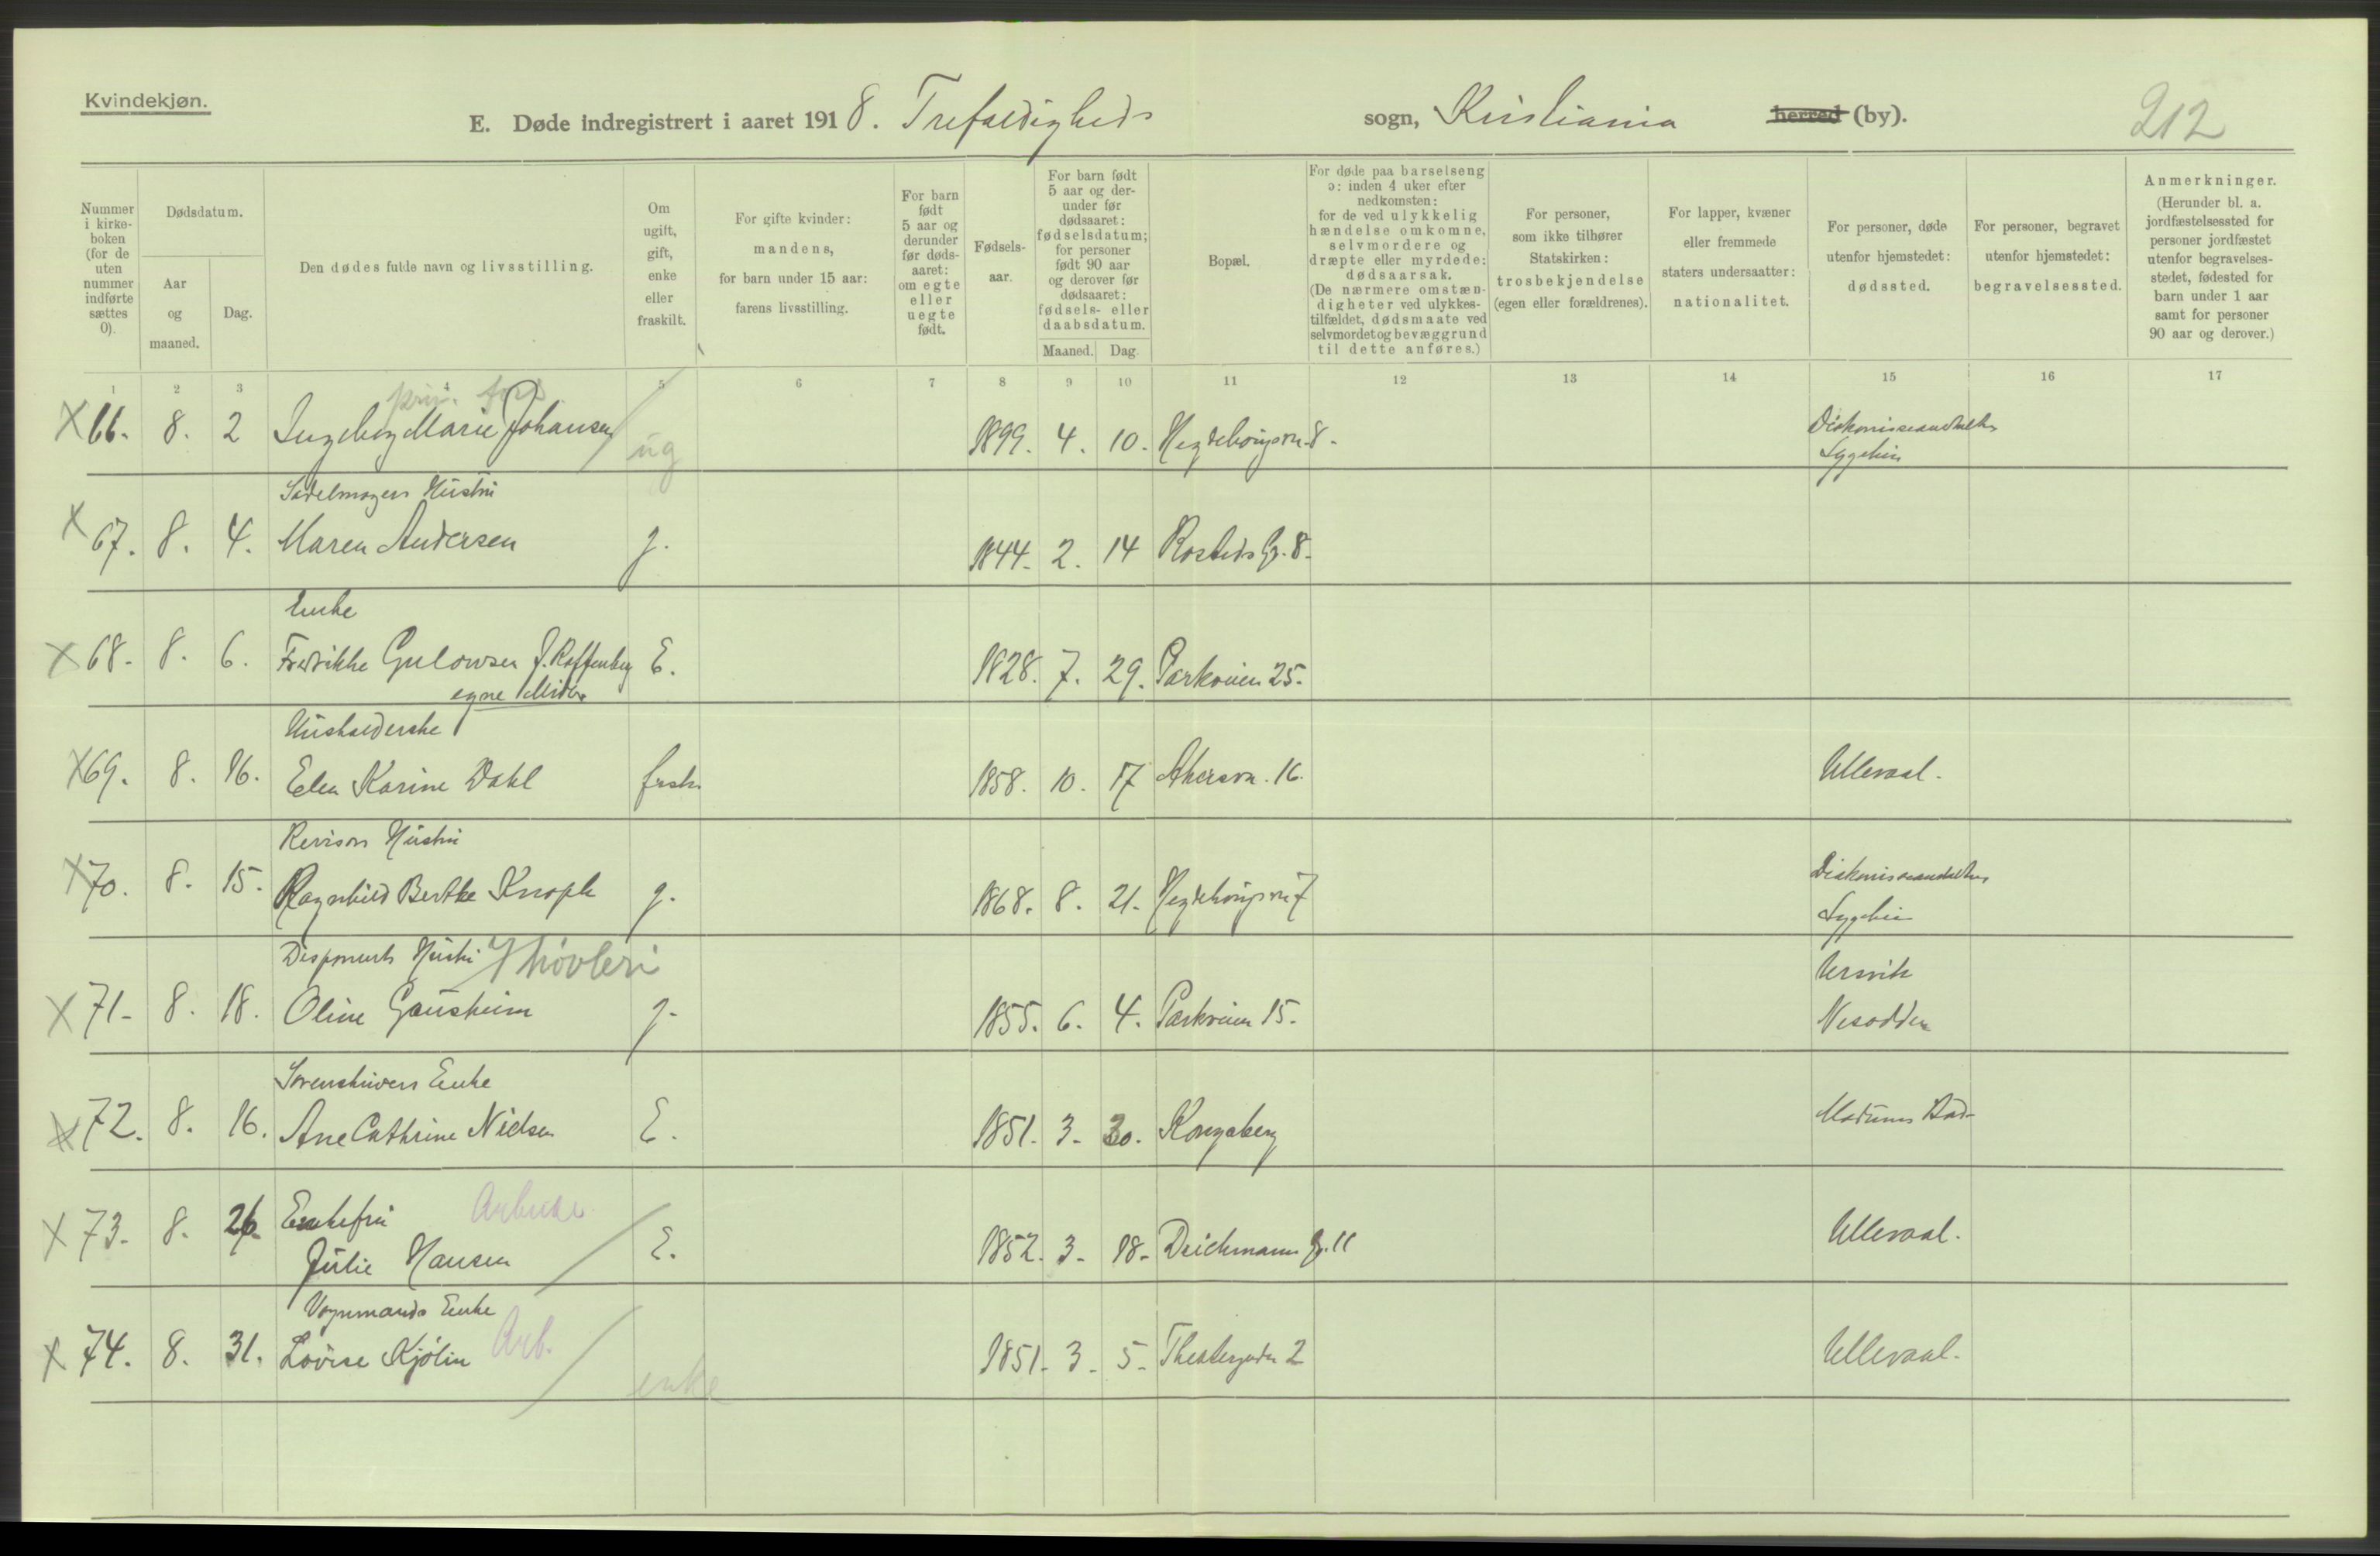 Kvindekjøn.
E. Døde indregistrert i aaret 1918. Trefoldigheds sogn, Kristiania herred (by).
212
Nummer i kirkeboken (for de uten nummer indførte sættes 0).
Dødsdatum.
Aar og maaned.
Dag.
Den dødes fulde navn og livsstilling.
Om ugift, gift, enke eller fraskilt.
For gifte kvinder: mandens, for barn under 15 aar: farens livsstilling.
For barn født 5 aar og derunder før dødsaaret: om egte eller uegte født.
Fødselsaar.
For barn født 5 aar og derunder før dødsaaret: fødselsdatum; for personer født 90 aar og derover før dødsaaret: fødsels- eller daabsdatum.
Maaned. Dag.
Bopæl.
For døde paa barselseng ɔ: inden 4 uker efter nedkomsten: for de ved ulykkelig hændelse omkomne, selvmordere og dræpte eller myrdede: dødsaarsak. (De nærmere omstændigheter ved ulykkestilfældet, dødsmaate ved selvmordet og bevæggrund til dette anføres.)
For personer, som ikke tilhører Statskirken: trosbekjendelse (egen eller forældrenes).
For lapper, kvæner eller fremmede staters undersaatter: nationalitet.
For personer, døde utenfor hjemstedet: dødssted.
For personer, begravet utenfor hjemstedet: begravelsessted.
Anmerkninger. (Herunder bl. a. jordfæstelsessted for personer jordfæstet utenfor begravelsesstedet, fødested for barn under 1 aar samt for personer 90 aar og derover.)
1 2 3 4 5 6 7 8 9 10 11 12 13 14 15 16 17
priv. fors.
X 66. 8. 2 Ingeborg Marie Johansen ug 1899. 4. 10. Hegdehaugsvn. 8. Diakonisseanstaltens
Sygehus
Sadelmagers Hustru
X 67. 8. 4. Maren Andersen g. 1844. 2. 14 Rosteds G. 8.
Enke
X 68. 8. 6. Fredrikke Gulowsen f. Roffenberg E. 1828. 7. 29. Parkveien 25.
egne Midler
Husholderske
X 69. 8. 16. Elen Karine Dahl frsk. 1858. 10. 17 Akersvn. 16. Ullevaal.
Revisors Hustru
X 70. 8. 15. Ragnhild Berthe Knoph g. 1868. 8. 21. Hegdehaugsvn 7 Diakonisseanstaltens
Sygehus
Disponents Hustru Høvleri
X 71. 8. 18. Oline Gausheim g. 1855. 6. 4. Parkveien 15. Ursvik
Nesodden
Sorenskrivers Enke
X 72. 8. 16. Ane Cathrine Nielsen E. 1851. 3. 30. Kongsberg Modums Bad.
Enkefru Arbeider
X 73. 8. 26. Julie Hansen E. 1852. 3. 18. Deichmans G. 11 Ullevaal.
Vognmands Enke
X 74. 8. 31. Lovise Kjølin Arb. enke 1851. 3. 5. Theatergaden 2 Ullevaal.